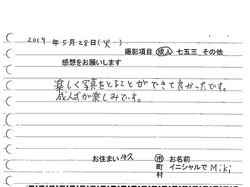 2019年5月28日(火)
撮影項目 成人 七五三 その他
感想をお願いします
楽しく写真をとることができて良かったです。
成人式が楽しみです。
お住まい 市 お名前
町 イニシャルで Miki
村